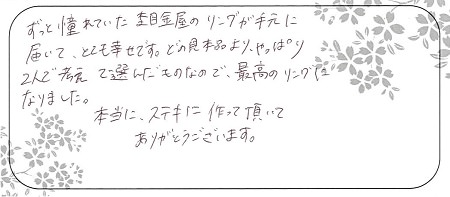 ずっと憧れていた杢目金屋のリングが手元に
届いて、とても幸せです。どの見本品より、やっぱり
2人で考えて選んだものなので、最高のリングに
なりました。
本当に、ステキに作って頂いて
ありがとうございます。